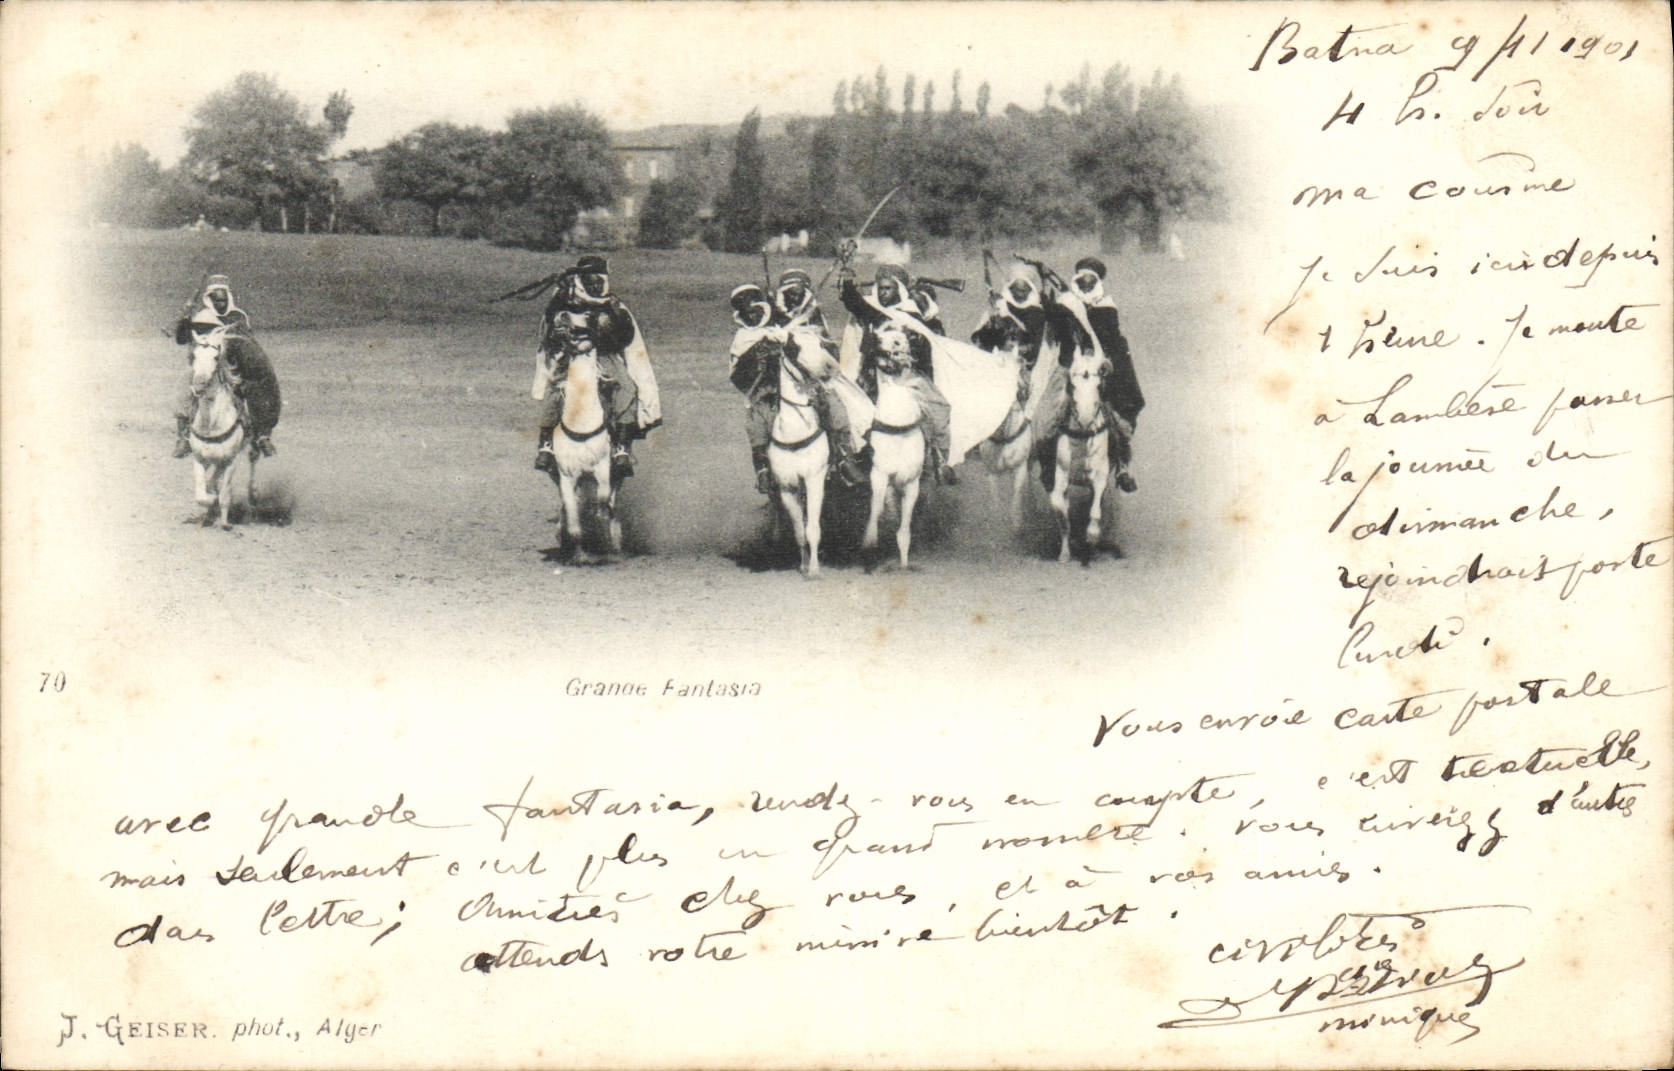 Batna 9/11 1901
4 h. soir
ma cousine
Je suis ici depuis
1 heure. Je monte
à Lambèse passer
la journée du
dimanche,
rejoindrais porte
lundi.
70
Grande Fantasia
Vous envoie carte postale
avec grande fantasia, rendez-vous en compte, c'est textuelle,
mais seulement c'est plus en grand nombre. Vous envoizz d'autres
dans lettre; Amitiés chez vous, et à vos amis.
attends votre missive bientôt.
J. GEISER. phot., Alger